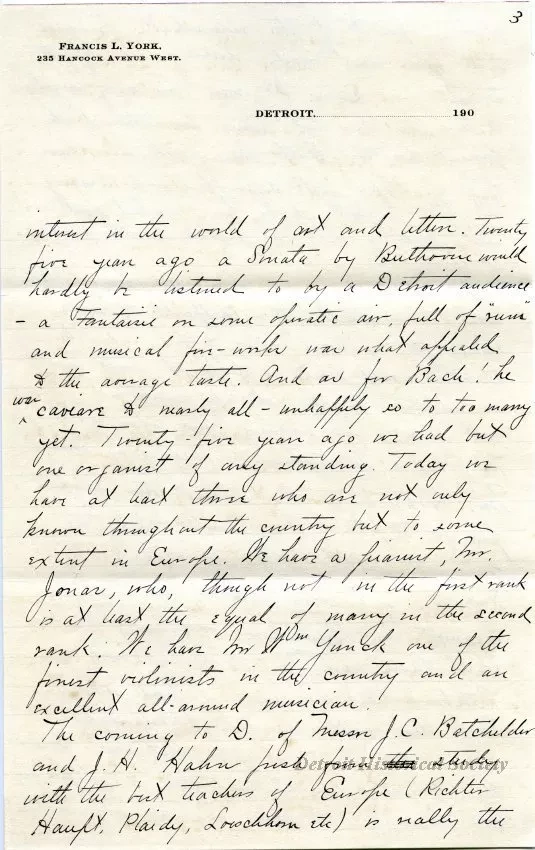 3
FRANCIS L. YORK.
235 HANCOCK AVENUE WEST.
DETROIT 190
interest in the world of art and letters. Twenty
five years ago a Sonata by Beethoven would
hardly be listened to by a Detroit audience
- a Fantaisie on some operatic air, full of "runs"
and musical fire-works was what appealed
to the average taste. And as for Bach! he
was
caviare to nearly all - unhappily so to too many
yet. Twenty-five years ago we had but
one organist of any standing. Today we
have at least three who are not only
known throughout the country but to some
extent in Europe. We have a pianist, Mr.
Jonas, who, though not in the first rank
is at least the equal of many in the second
rank. We have Mr Wm Yunck one of the
finest violinists in the country and an
excellent all-around musician.
The coming to D. of Messrs J. C. Batchelder
and J. H. Hahn just from their study
Detroit Historical Society
with the best teachers of Europe (Richter
Haupt, Plaidy, Loeschhorn etc) is really the